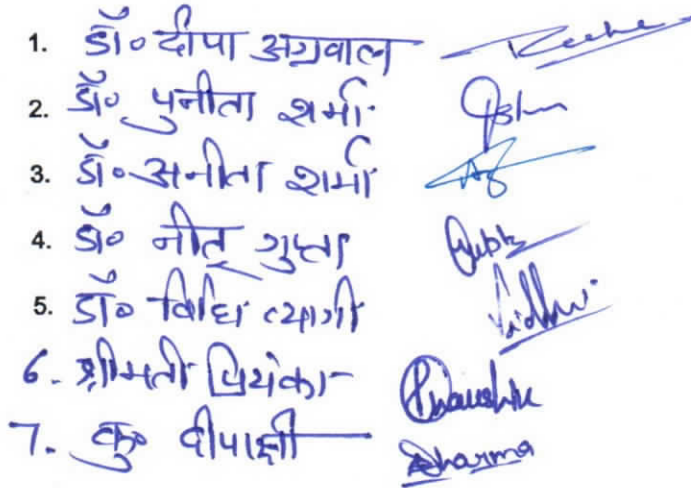 1. डॉ० दीपा अग्रवाल
2. डॉ० पुनीता शर्मा
3. डॉ० अनीता शर्मा
4. डॉ० नीतू गुप्ता
5. डॉ० विधि त्यागी Vidhi
6. श्रीमती प्रियंका
7. कु० दीपाक्षी Sharma